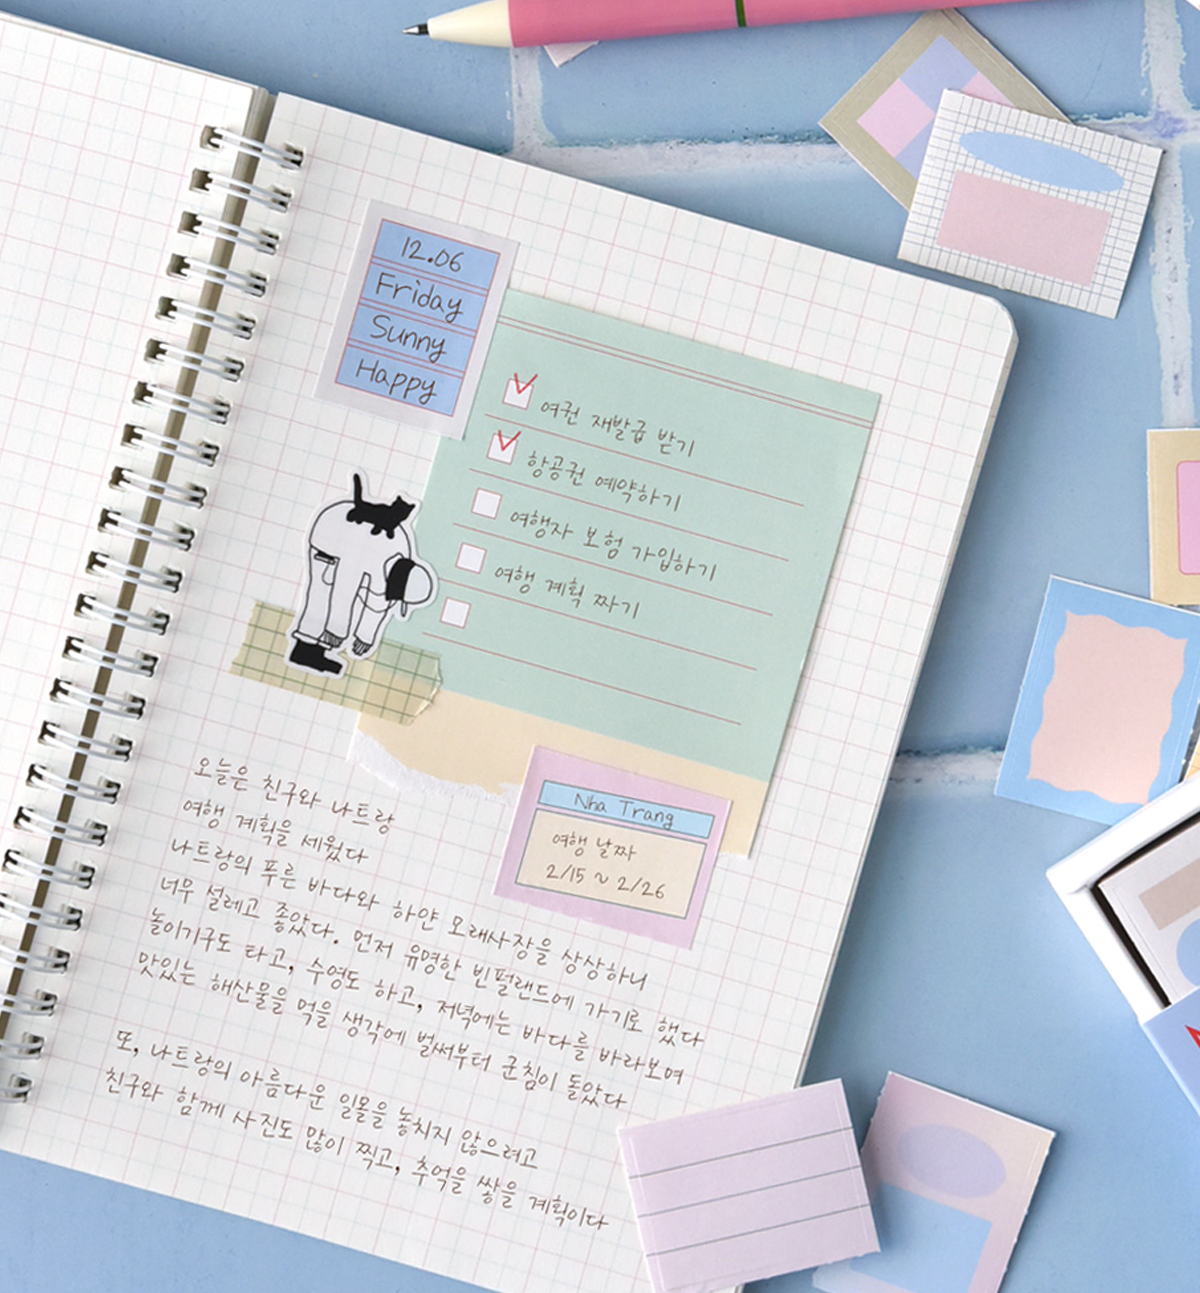 12.06
Friday
Sunny
Happy
여권 재발급 받기
항공권 예약하기
여행자 보험 가입하기
여행 계획 짜기
Nha Trang
여행 날짜
2/15 ~ 2/26
오늘은 친구와 나트랑
여행 계획을 세웠다
나트랑의 푸른 바다와 하얀 모래사장을 상상하니
너무 설레고 좋았다. 먼저 유명한 빈펄랜드에 가기로 했다
놀이기구도 타고, 수영도 하고, 저녁에는 바다를 바라보며
맛있는 해산물을 먹을 생각에 벌써부터 군침이 돌았다
또, 나트랑의 아름다운 일몰을 놓치지 않으려고
친구와 함께 사진도 많이 찍고, 추억을 쌓을 계획이다